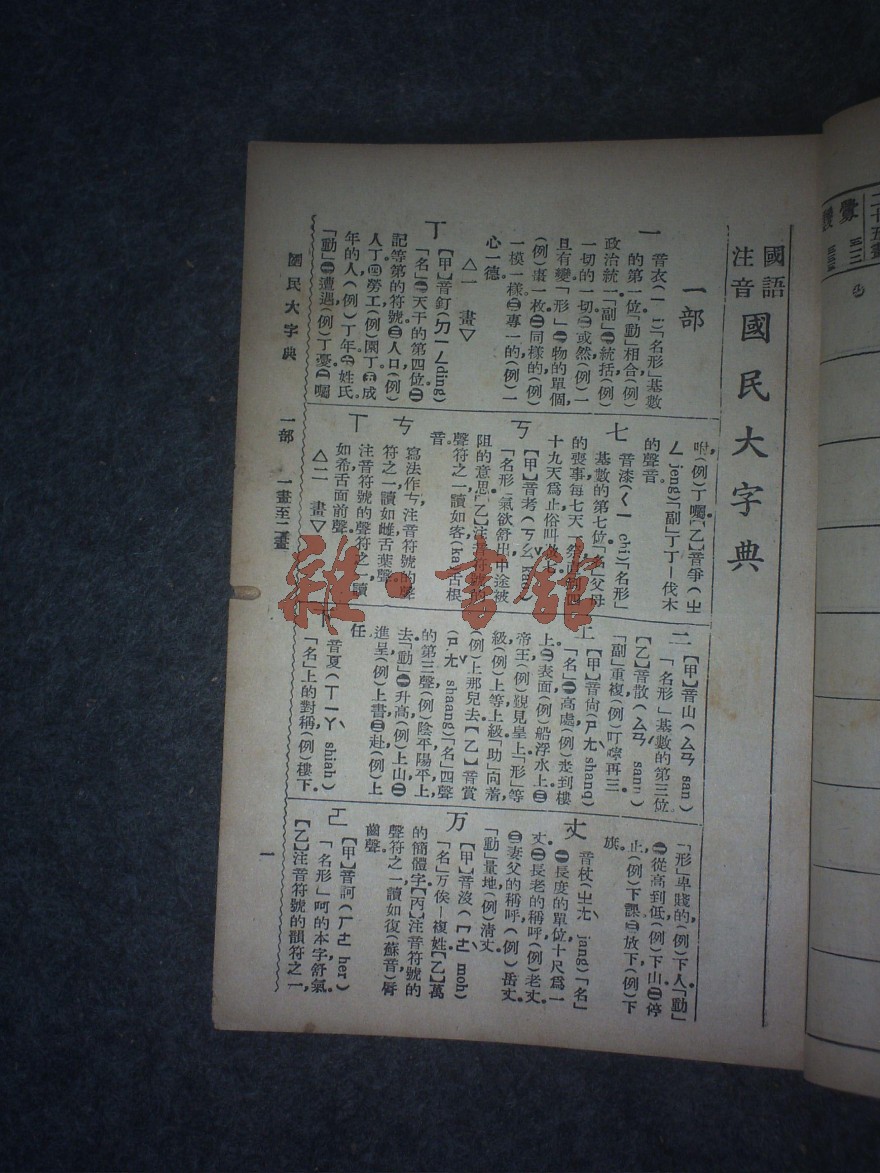 國語
注音
國民大字典
一部
一 音衣(ㄧ i)「名形」基數
的第一位「動」相合(例)
政治統一「副」㊀統括(例)
一切的一切㊁或然(例)一
且有變「形」㊀物的單個
(例)書一枚㊁同樣的(例)
一模一樣㊂專一的(例)一
心一德
△一 畫▽
丁
【甲】音釘(ㄉㄧㄥding)
「名」㊀天干的第四位㊁
記等第的符號㊂人口(例)
人丁㊃勞工(例)園丁㊄成
年的人(例)丁年㊅姓氏
「動」㊀遭遇(例)丁憂㊁囑
咐(例)丁囑【乙】音爭(ㄓ
ㄥ jeng)「副」丁丁—伐木
的聲音
七 音漆(ㄑㄧ chi)「名形」
基數的第七位「名」父母
的喪事每七天一祭直到四
十九天為止俗叫做七
ㄎ
【甲】音考(ㄎㄠ
「名形」氣欲舒出中途被
阻的意思【乙】注音符號的
聲符之一讀如客(ka)舌根
音
ㄘ
寫法作ㄘ注音符號的聲
符之一讀如雌舌葉聲
ㄒ 注音符號的聲符之一讀
如希舌面前聲
△二 畫▽
三
【甲】音山(ㄙㄢ san)
「名形」基數的第三位
【乙】音散(ㄙㄢ sann)
「副」重複(例)叮嚀再三
上
【甲】音尙(ㄕㄤ shanq)
「名」㊀高處(例)走到樓
上㊁表面(例)船浮水上㊂
帝王(例)覲見皇上「形」等
級(例)上等上級「助」向着
(例)上那兒去【乙】音賞
(ㄕㄤ shaang)「名」四聲
的第三聲(例)陰平陽平上
去「動」㊀升高(例)上山㊁
進呈(例)上書㊂赴(例)上
任
下 音夏(ㄒㄧㄚ shiah)
「名」上的對稱(例)樓下
「形」卑賤的(例)下人「動」
㊀從高到低(例)下山㊁停
止(例)下課㊂放下(例)下
旗
丈 音杖(ㄓㄤ jang)「名」
㊀長度的單位十尺為一
丈㊁長老的稱呼(例)老丈
㊂妻父的稱呼(例)岳丈
「動」量地(例)清丈
万
【甲】音沒(ㄇㄛ moh)
「名」万俟—複姓【乙】萬
的簡體字【丙】注音符號的
聲符之一讀如復(蘇音)脣
齒聲
ㄛ
【甲】音訶(ㄏㄜ her)
「名形」呵的本字舒氣
【乙】注音符號的韻符之一
國民大字典 一部 一畫至二畫 一
雜·書館